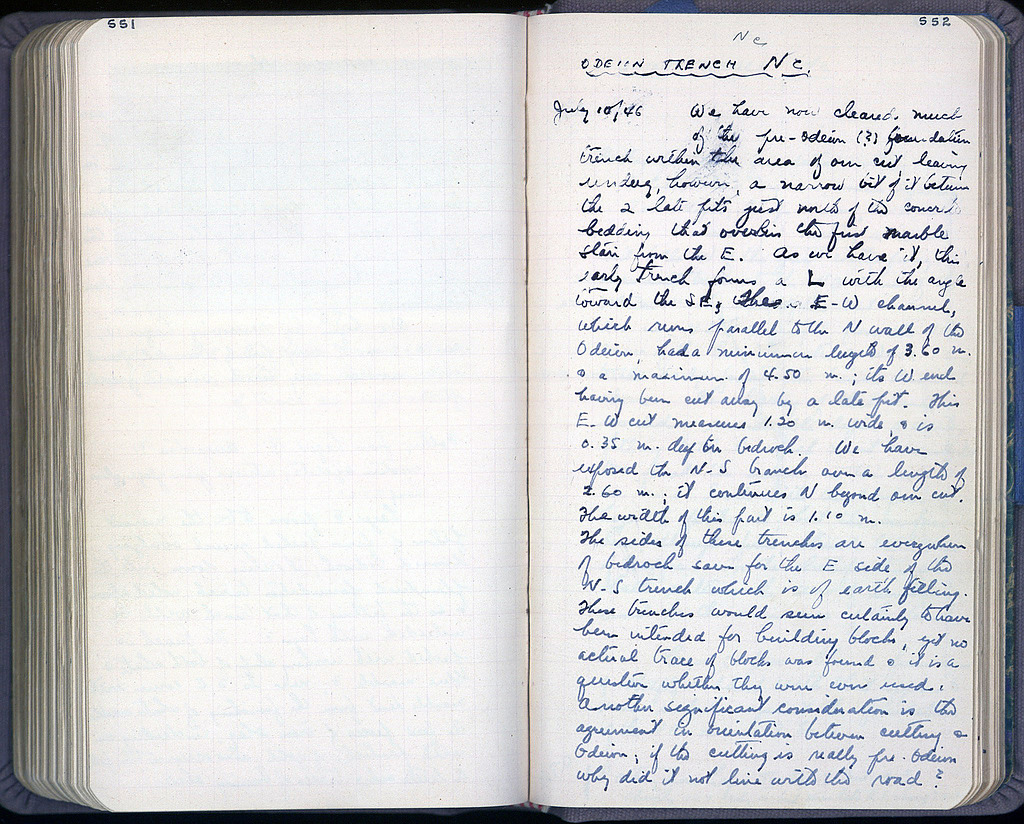 551
552
Nc
ODEION TRENCH Nc.
July 10/46 We have now cleared much
of the pre-Odeion (?) foundation
trench within the area of our cut leaving
undug, however, a narrow bit of it between
the 2 late pits just north of the concrete
bedding that overlies the first marble
stair from the E. As we have it, this
early trench forms a L with the angle
toward the SE; the E-W channel,
which runs parallel to the N wall of the
Odeion, had a minimum length of 3.60 m.
& a maximum of 4.50 m.; its W. end
having been cut away by a late pit. This
E-W cut measures 1.20 m. wide, & is
0.35 m. deep in bedrock. We have
exposed the N-S branch over a length of
2.60 m.; it continues N beyond our cut.
The width of this part is 1.10 m.
The sides of these trenches are everywhere
of bedrock save for the E side of the
N-S trench which is of earth filling.
These trenches would seem certainly to have
been intended for building blocks, yet no
actual trace of blocks was found & it is a
question whether they were ever used.
Another significant consideration is the
agreement in orientation between cutting &
Odeion; if the cutting is really pre-Odeion
why did it not line with the road?